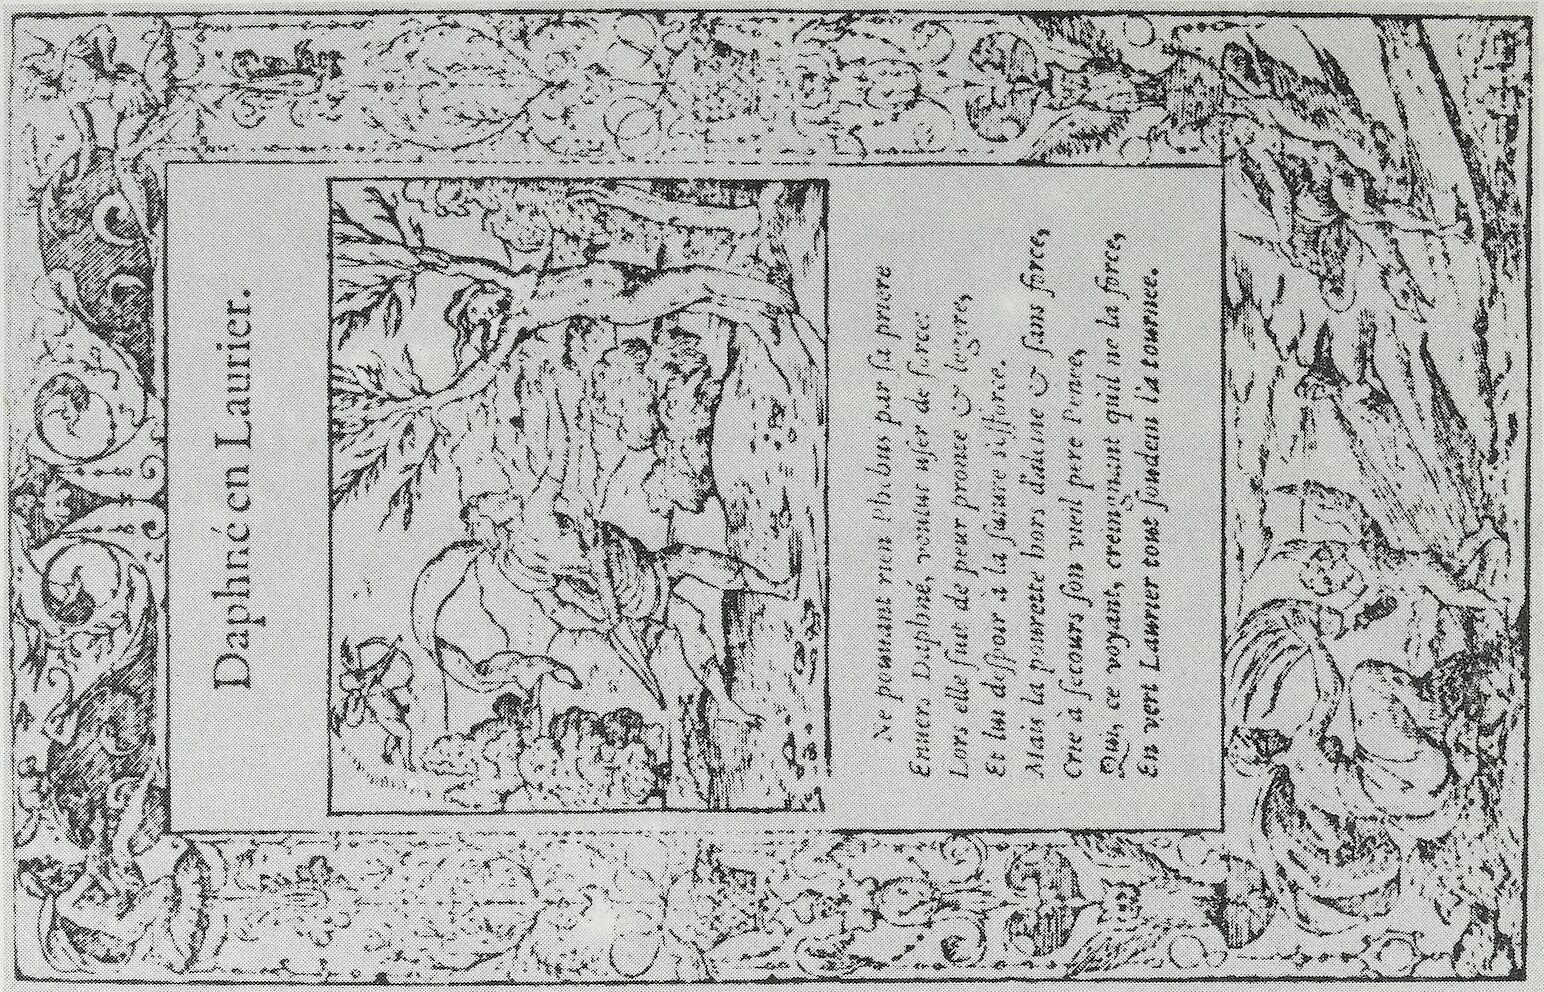 Daphné en Laurier.
Ne pouuant rien Phebus par sa priere
Enuers Daphné, voulut vser de force:
Lors elle fuit de peur pronte & legere,
Et lui despoir à la suiure s'efforce.
Mais la pourette hors d'aleine & sans force,
Crie à secours son vieil pere Penee,
Qui, ce voyant, creingnant qu'il ne la force,
En vert Laurier tout soudein l'a tournee.